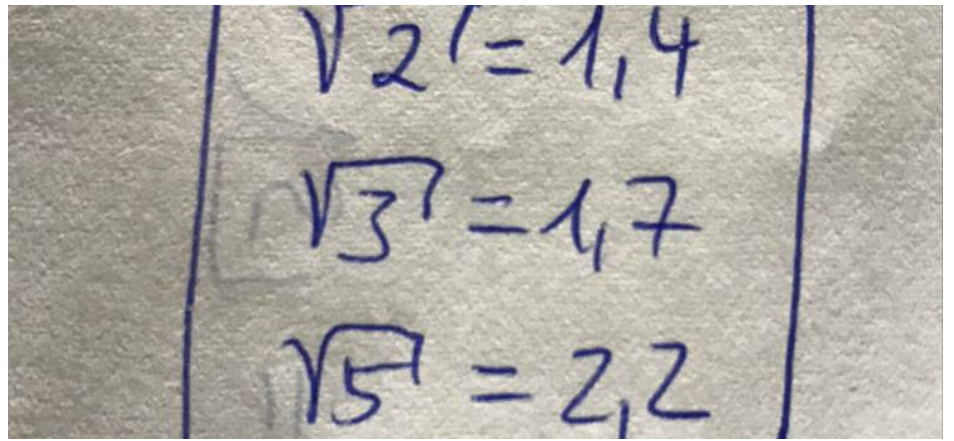 √2 = 1,4
√3 = 1,7
√5 = 2,2